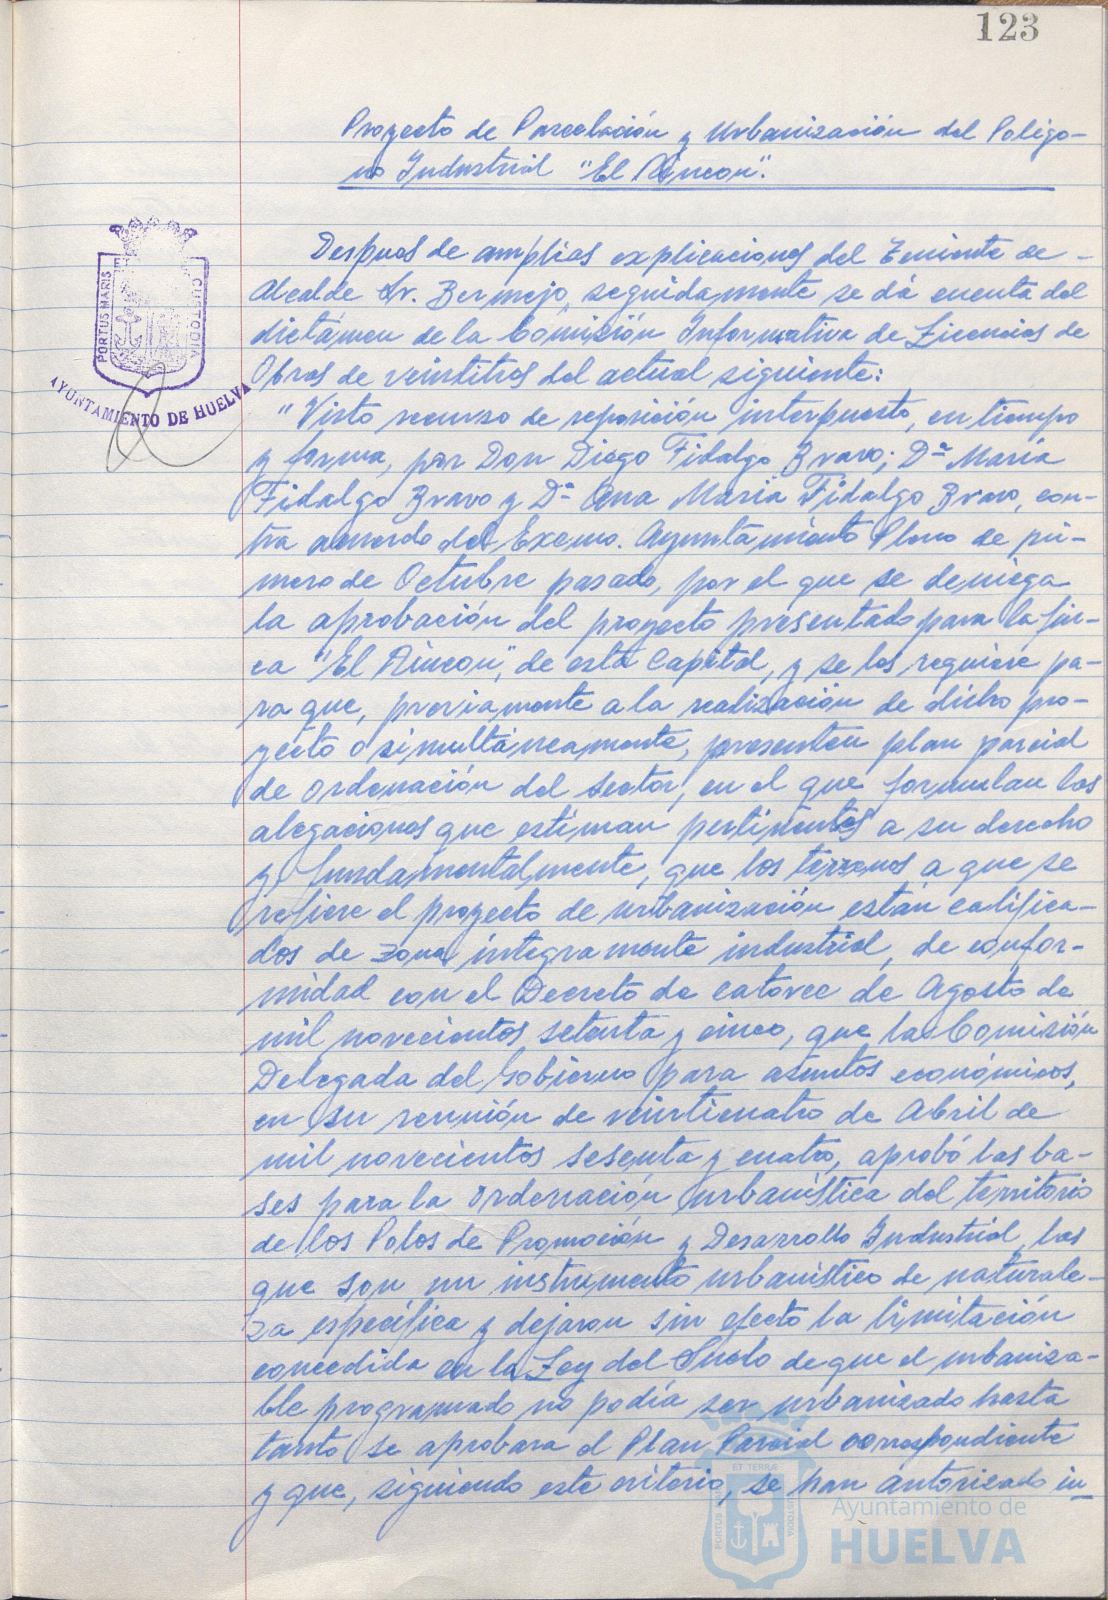 123
Proyecto de Parcelación y Urbanización del Polígo-
no Industrial "El Rincon".
PORTUS MARIS CUSTODIA
AYUNTAMIENTO DE HUELVA
Despues de amplias explicaciones del Teniente de -
Alcalde Sr. Bermejo, seguidamente se dá cuenta del
dictámen de la Comisión Informativa de Licencias de
Obras de veintitres del actual siguiente:
"Visto recurso de reposición interpuesto, en tiempo
y forma, por Don Diego Fidalgo Bravo; Dª María
Fidalgo Bravo y Dª Ana María Fidalgo Bravo, con-
tra acuerdo del Excmo. Ayuntamiento Pleno de pri-
mero de Octubre pasado, por el que se deniega
la aprobación del proyecto presentado para la fin-
ca "El Rincon", de esta Capital, y se les requiere pa-
ra que, previamente a la realización de dicho pro-
yecto o simultáneamente, presenten plan parcial
de ordenación del sector, en el que formulan las
alegaciones que estiman pertinentes a su derecho
y fundamentalmente, que los terrenos a que se
refiere el proyecto de urbanización están califica-
dos de zona íntegramente industrial, de confor-
midad con el Decreto de catorce de Agosto de
mil novecientos setenta y cinco, que la Comisión
Delegada del Gobierno para asuntos económicos,
en su reunión de veinticuatro de Abril de
mil novecientos sesenta y cuatro, aprobó las ba-
ses para la Ordenación Urbanística del territorio
de los Polos de Promoción y Desarrollo Industrial, las
que son un instrumento urbanístico de naturale-
za específica y dejaron sin efecto la limitación
concedida en la Ley del Suelo de que el urbaniza-
ble programado no podía ser urbanizado hasta
tanto se aprobara el Plan Parcial correspondiente
y que, siguiendo este criterio, se han autorizado in-
PORTUS MARIS ET TERRAE CUSTODIA
Ayuntamiento de
HUELVA